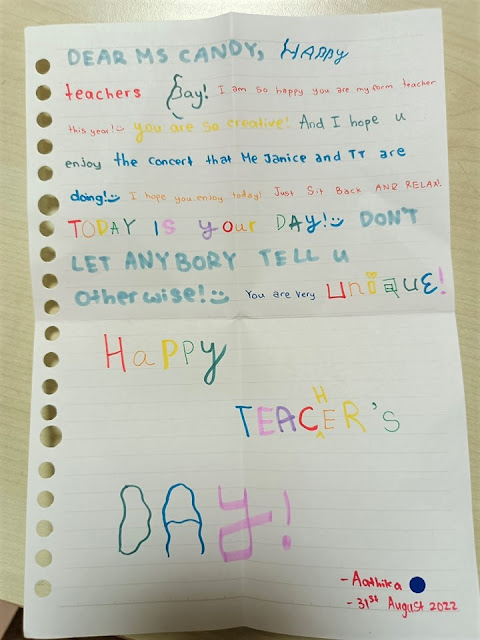 DEAR MS CANDY, HAPPY
teachers Day! I am so happy you are my form teacher
this year! you are so creative! And I hope u
enjoy the concert that Me Janice and TT are
doing! I hope you enjoy today! Just Sit Back AND RELAX!
TODAY IS your DAY! DON'T
LET ANYBORY TELL u
otherwise! You are very UniQuE!
HaPPY
TEACHER's
DAY!
- Aathika
- 31st August 2022